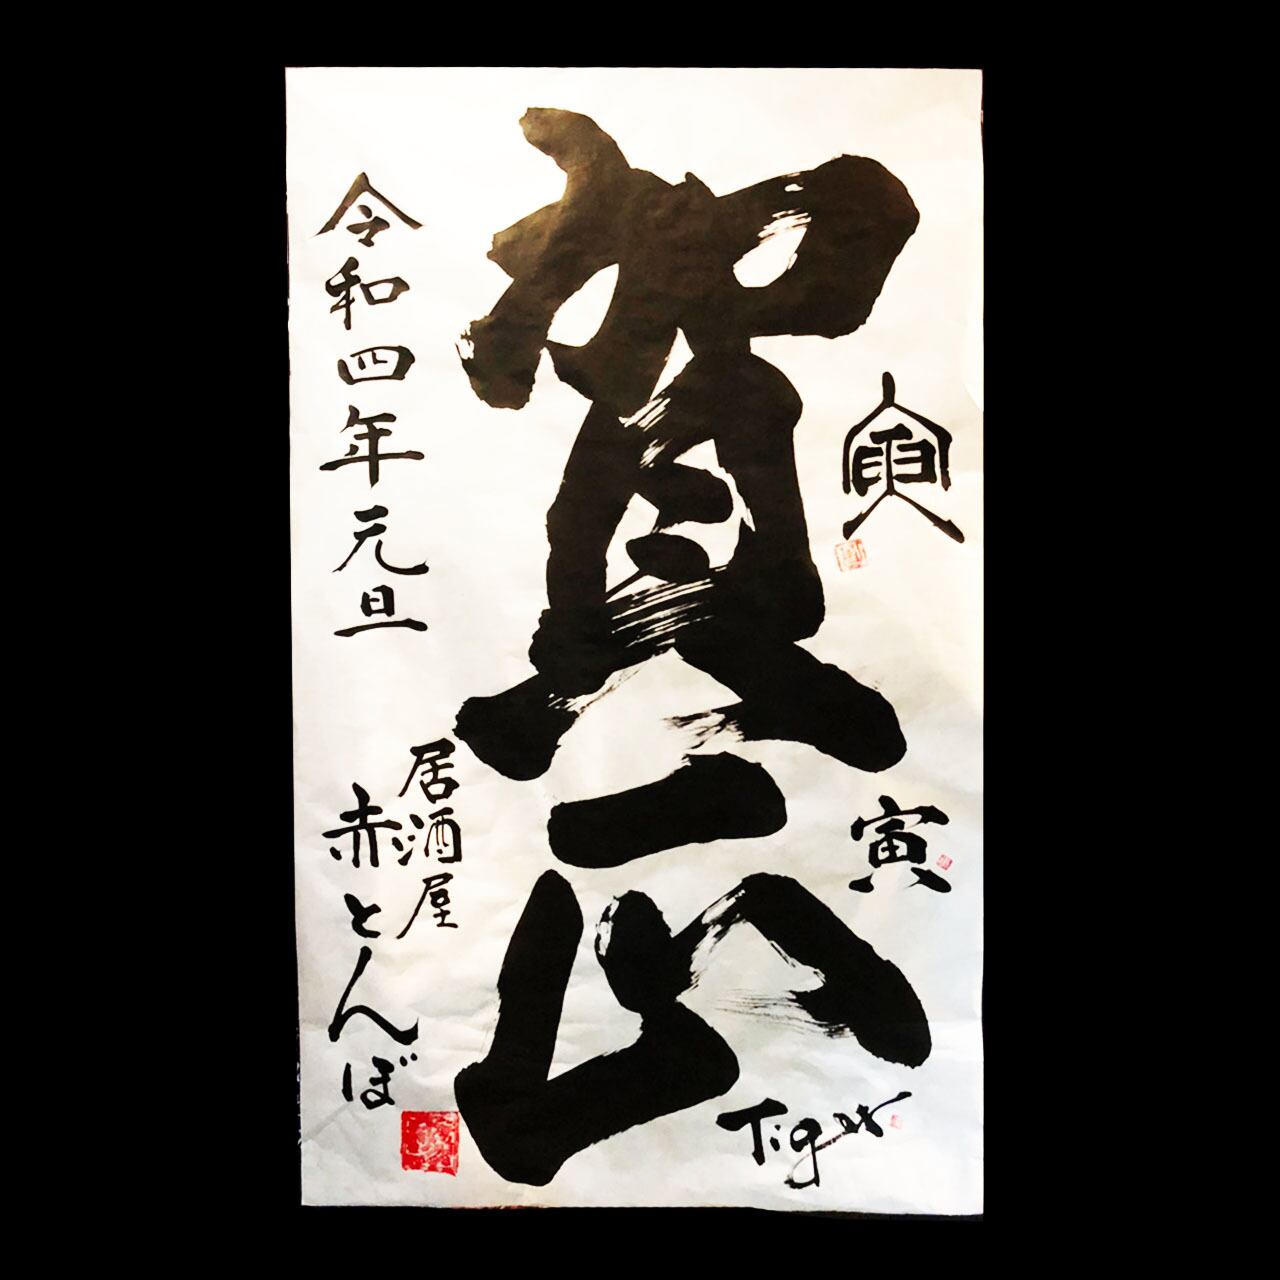 寅
寅
Tiger
賀正
令和四年元旦
居酒屋
赤とんぼ